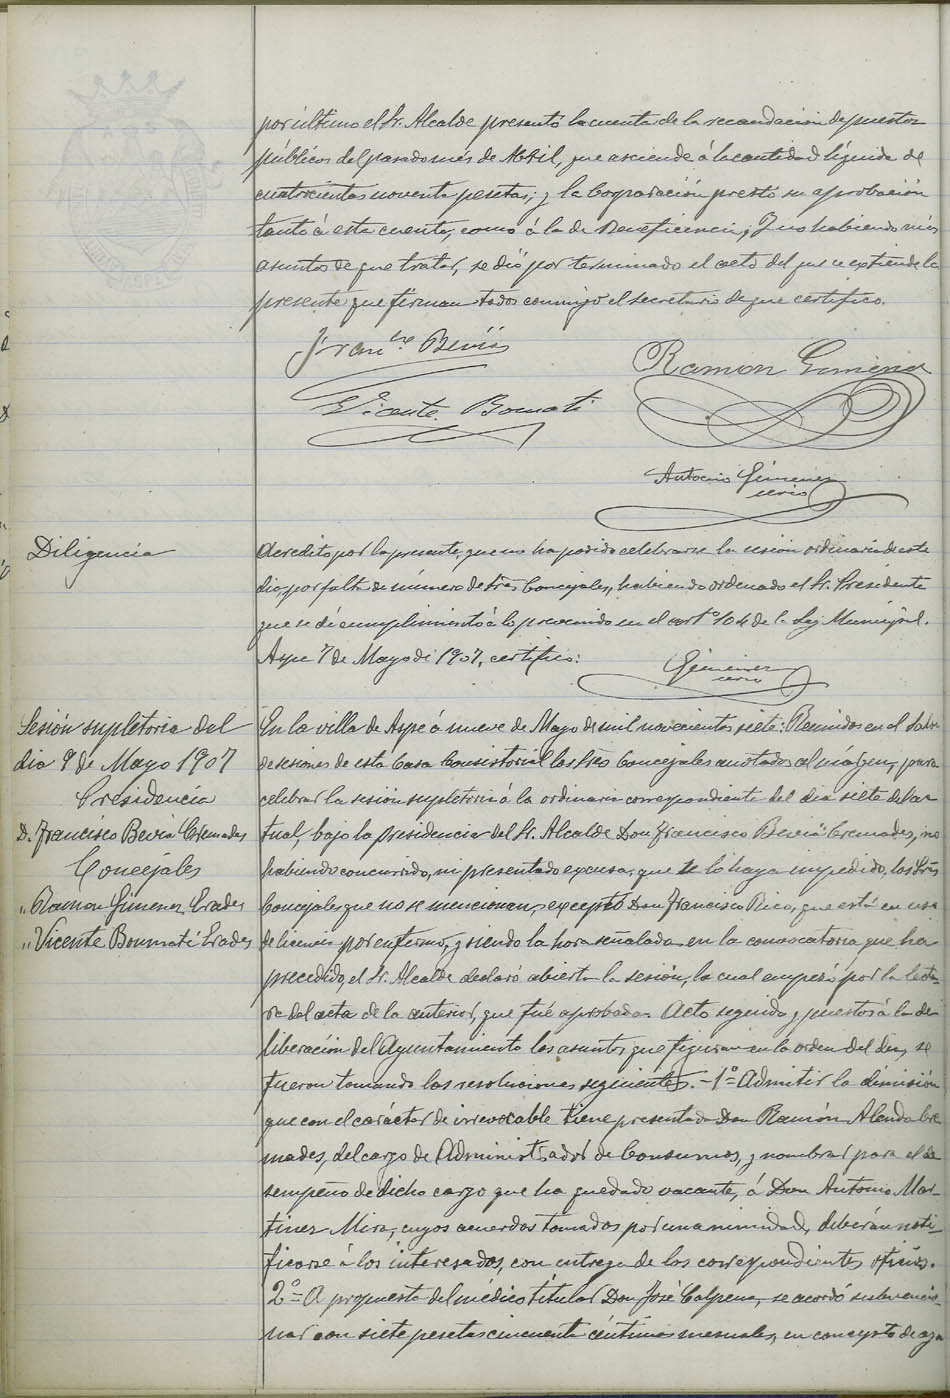 por último el Sr. Alcalde presentó la cuenta de la recaudación de puestos
públicos del pasado més de Abril, que asciende á la cantidad líquida de
cuatrocientas noventa pesetas; y la Corporación prestó su aprobación
tanto á esta cuenta, como á la de Beneficencia; Y no habiendo más
asuntos de que tratar, se dió por terminado el acto del que se extiende la
presente que firman todos conmigo el secretario de que certifico.
Franco Beviá
Ramon Gimenez
Vicente Bonmati
Antonio Gimenez
srio
Diligencia
Acredito por la presente, que no ha podido celebrarse la sesión ordinaria de este
dia, por falta de número de Sres Concejales, habiendo ordenado el Sr. Presidente
que se dé cumplimiento á lo prevenido en el artº 104 de la Ley Municipal.
Aspe 7 de Mayo de 1907, certifico:
Gimenez
srio
Sesión supletoria del
dia 9 de Mayo 1907
Presidencia
D. Francisco Beviá Cremades
Concejales
„ Ramon Gimenez Erades
„ Vicente Bonmatí Erades
En la villa de Aspe á nueve de Mayo de mil novecientos siete: Reunidos en el Salon
de sesiones de esta Casa Consistorial los Sres Concejales anotados al márgen, para
celebrar la sesión supletoria á la ordinaria correspondiente del dia siete del ac-
tual, bajo la presidencia del Sr. Alcalde Don Francisco Beviá Cremades, no
habiendo concurrido, ni presentado excusa que se lo haya impedido, los Sres
Concejales que no se mencionan, excepto Don Francisco Rico, que está en uso
de licencia por enfermo, y siendo la hora señalada en la convocatoria que ha
precedido, el Sr. Alcalde declaró abierta la sesión, la cual empezó por la lectu-
ra del acta de la anterior, que fué aprobada. Acto seguido, y puestos á la de-
liberación del Ayuntamiento los asuntos que figuran en la orden del dia, se
fueron tomando las resoluciones siguientes. - 1º = Admitir la dimisión
que con el carácter de irrevocable tiene presentada Don Ramón Alenda Cre-
mades, del cargo de Administrador de Consumos, y nombrar para el de-
sempeño de dicho cargo que ha quedado vacante, á Don Antonio Mar-
tinez Mira, cuyos acuerdos tomados por unanimidad, deberán noti-
ficarse á los interesados, con entrega de los correspondientes oficios.
2º = A propuesta del médico titular Don José Calpena, se acordó subvencio-
nar con siete pesetas cincuenta céntimos mensuales, en concepto de